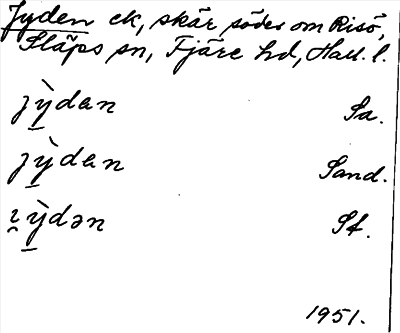 Jyden ck, skär söder om Risö,
Släps sn, Fjäre hd, Hall. l.
jỳ̠dan Sa.
jỳ̠dan Sand.
ı̯ỳ̠dən St.
1951.